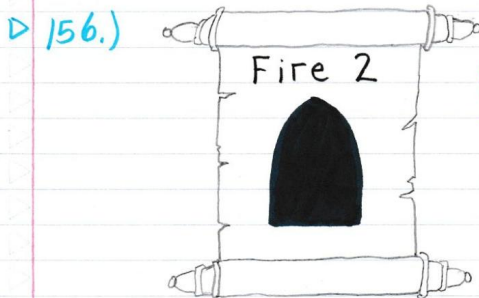 ▷ 156.)
Fire 2